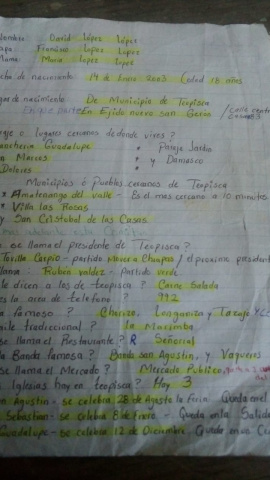 Nombre David López López
Papa Francisco López López
Mama Maria López López
cha de nacimiento 14 de Enero 2003 Edad 18 años
gar de nacimiento De Municipio de Teopisca
En Ejido nuevo san Geron / calle
o lugares cercanos de donde vives?
ancheria Guadalupe • Paraje Jardin
n Marcos • y Damasco
Dolores
Municipios ó Pueblos cercanos de Teopisca
• Amatenango del valle - Es el mas cercano a 10 minutos
• Villa las Rosas
y San Cristobal de las Casas
se llama el presidente de Teopisca?
Carpio - partido Chiapas / el proximo president
llama: Ruben Valdez - Partido verde
le dicen a los de teopisca? Carne Salada
es la area de telefono? 992
famoso? Chorizo, Longaniza y Tasajo
ile tradiccional? la Marimba
se llama el Restaurante? R Señorial
la Banda famosa? Banda san Agustin, y Vaqueros
se llama el Mercado? Mercado Publico,
Iglesias hay en teopisca? Hay 3
n Agustin - se celebra 28 de Agosto la Feria Queda en el
Sebastian - se celebra 8 de Enero - Queda en la Salida
Guadalupe - se celebra 12 de Diciembre. Queda en